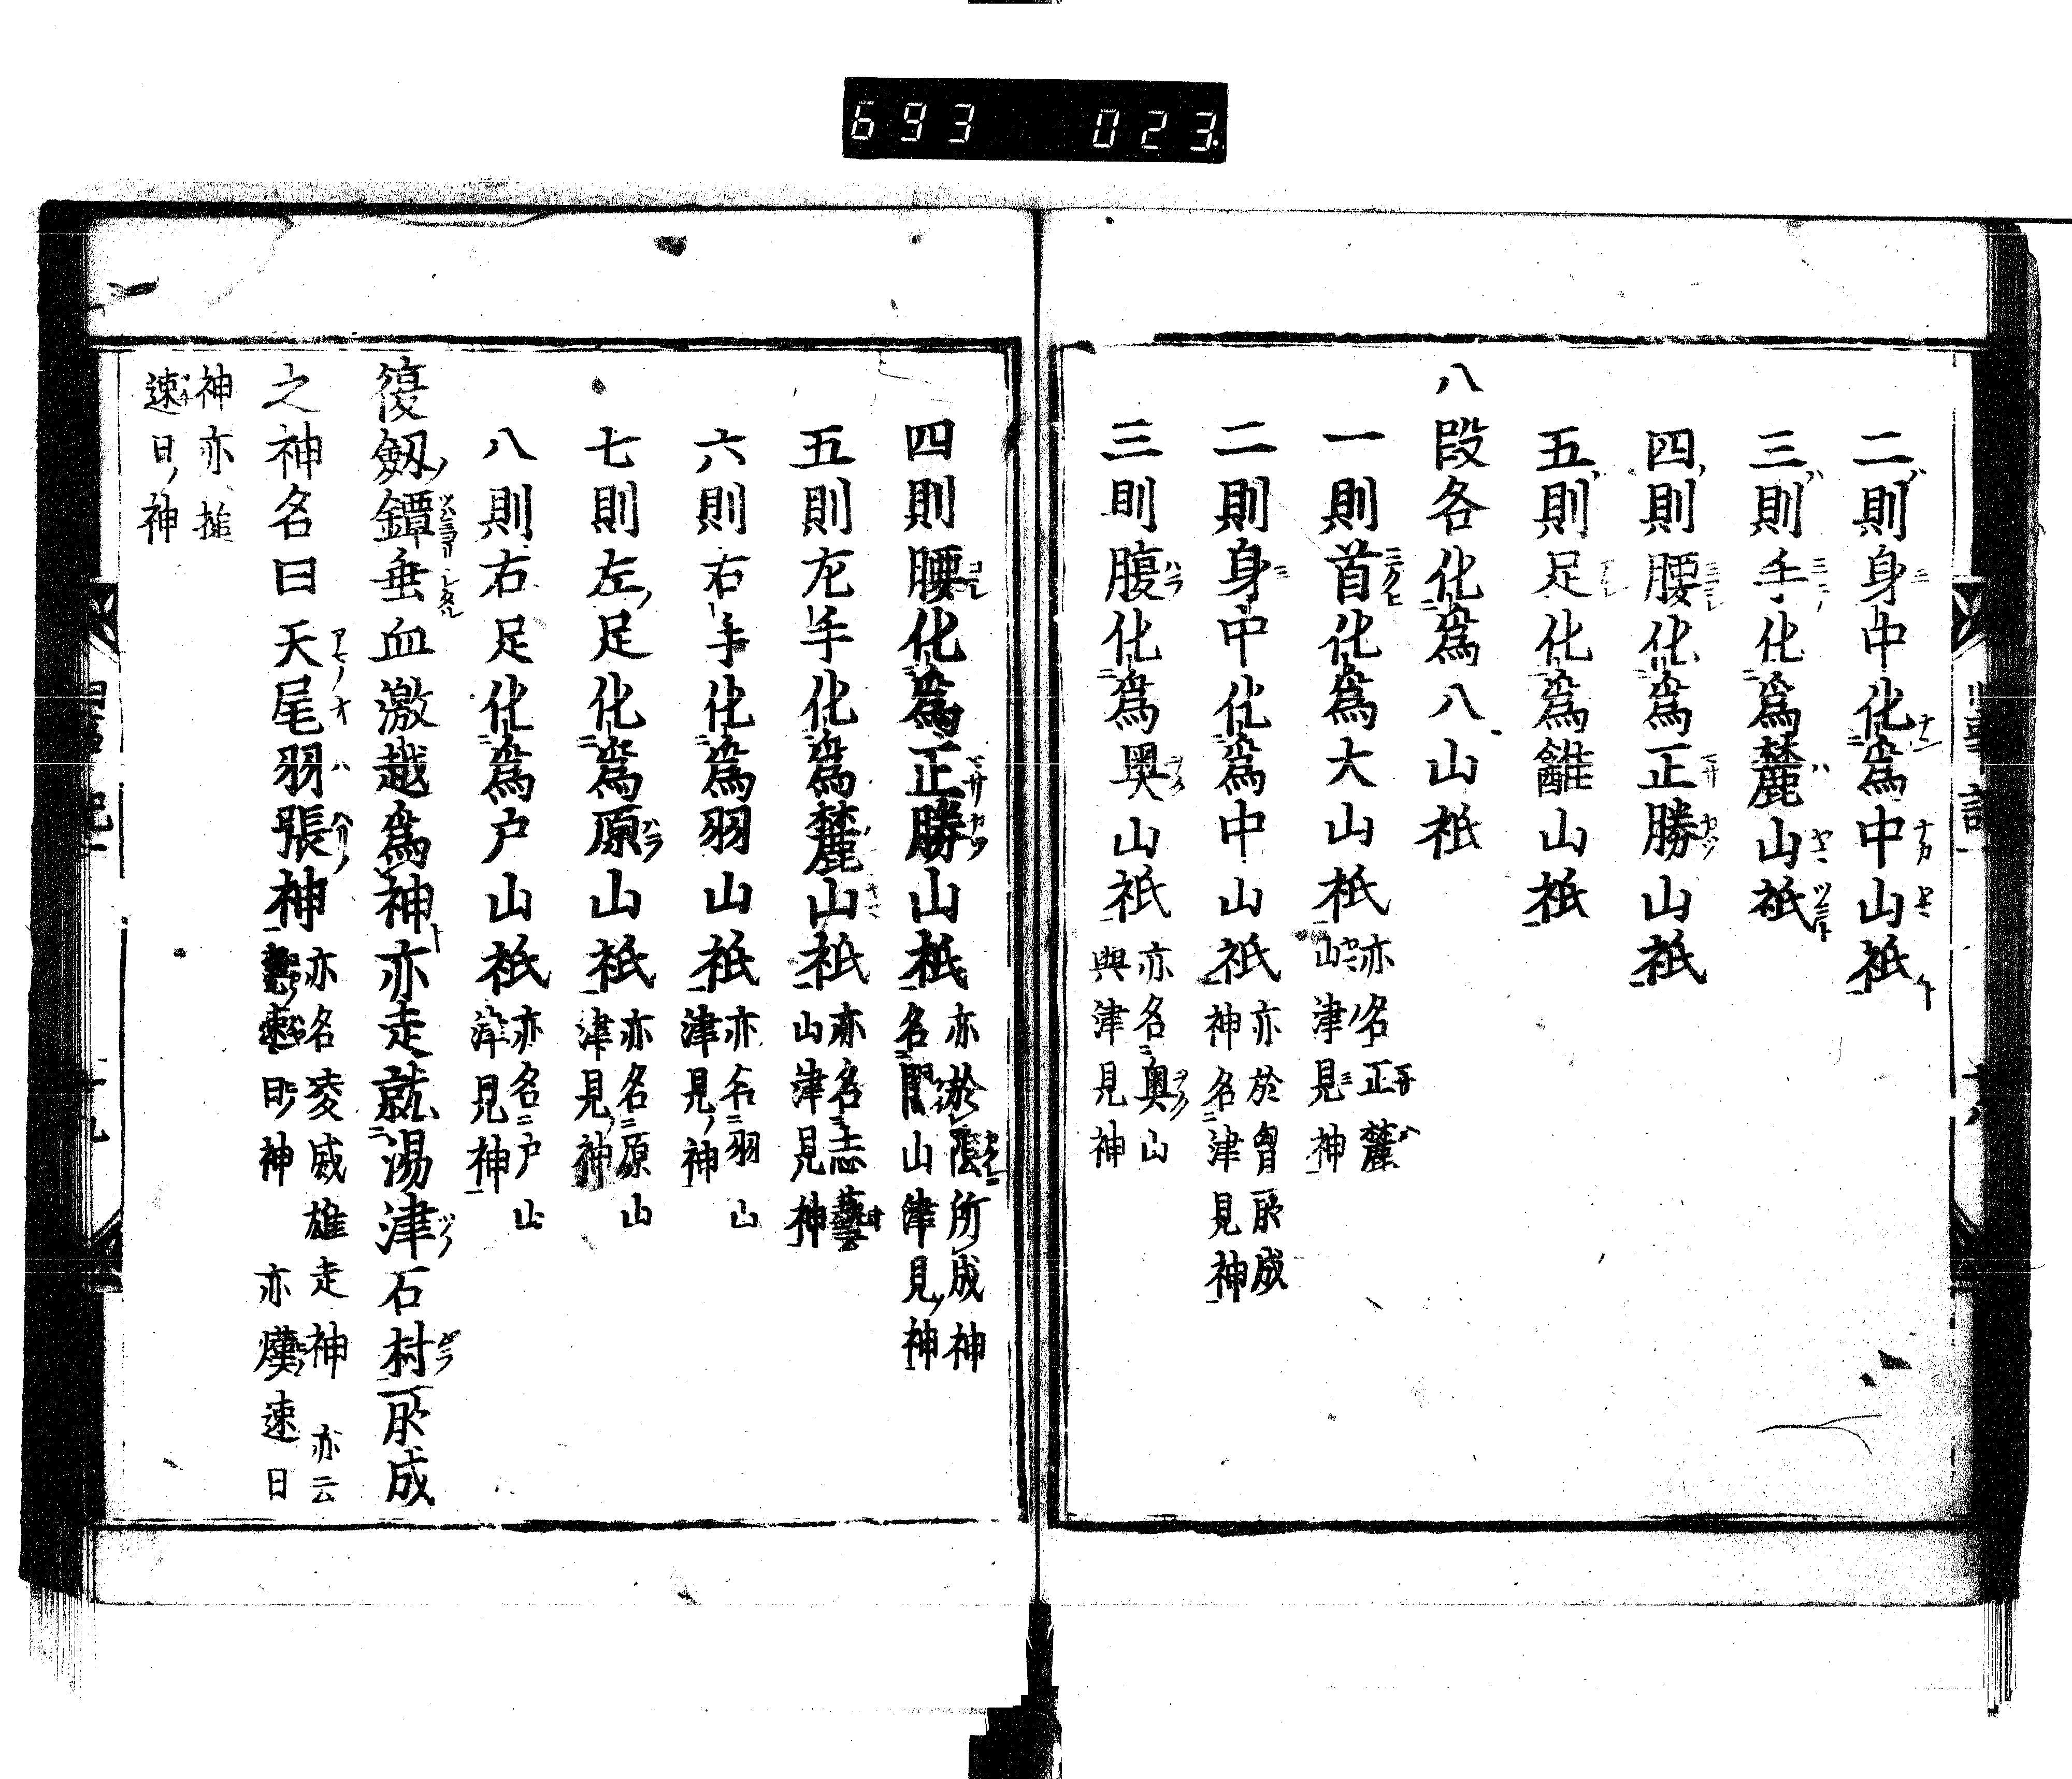 693 023
二則身中化爲中山祇
三則手化爲麓山祇
四則腰化爲正勝山祇
五則足化爲䧹山祇
八段各化爲八山祇
一則首化爲大山祇
亦名正麓
山津見神
二則身中化爲中山祇
亦於胷所成
神名津見神
三則腹化爲奥山祇
亦名奥山
與津見神
四則腰化爲正勝山祇
亦於陰所成神
名闇山津見神
五則左手化爲麓山祇
亦名志藝
山津見神
六則右手化爲羽山祇
亦名羽山
津見神
七則左足化爲原山祇
亦名原山
津見神
八則右足化爲戸山祇
亦名戸山
津見神
復劔鐔垂血激越爲神亦走就湯津石村所成
之神名曰天尾羽張神
亦名凌威雄走神 亦云
速日神 亦熯速日
神亦槌
速日神